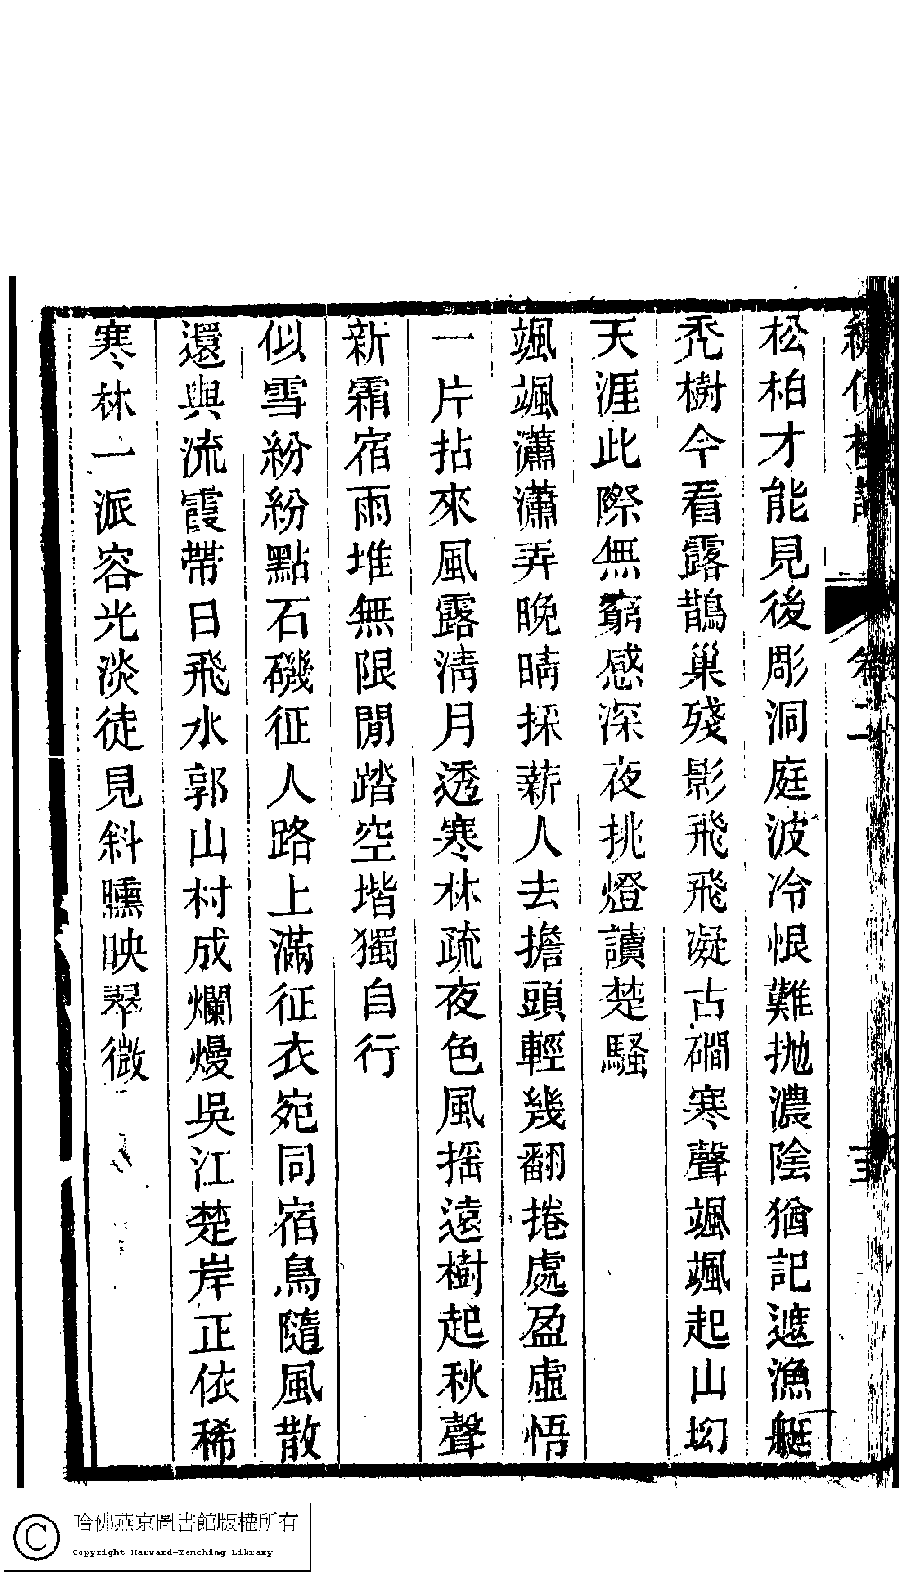 卷一
松柏才能見後彫洞庭波冷恨難拋濃陰猶記遮漁艇
禿樹今看露鵲巢殘影飛飛凝古磵寒聲颯颯起山坳
天涯此際無窮感深夜挑燈讀楚騷
颯颯瀟瀟弄晚晴採薪人去擔頭輕幾翻捲處盈虛悟
一片拈來風露淸月透寒林疏夜色風搖遠樹起秋聲
新霜宿雨堆無限閒踏空堦獨自行
似雪紛紛點石磯征人路上滿征衣宛同宿鳥隨風散
還與流霞帶日飛水郭山村成爛熳吳江楚岸正依稀
寒林一派容光淡徒見斜曛映翠微
哈佛燕京圖書館版權所有
Copyright Harvard-Yenching Library